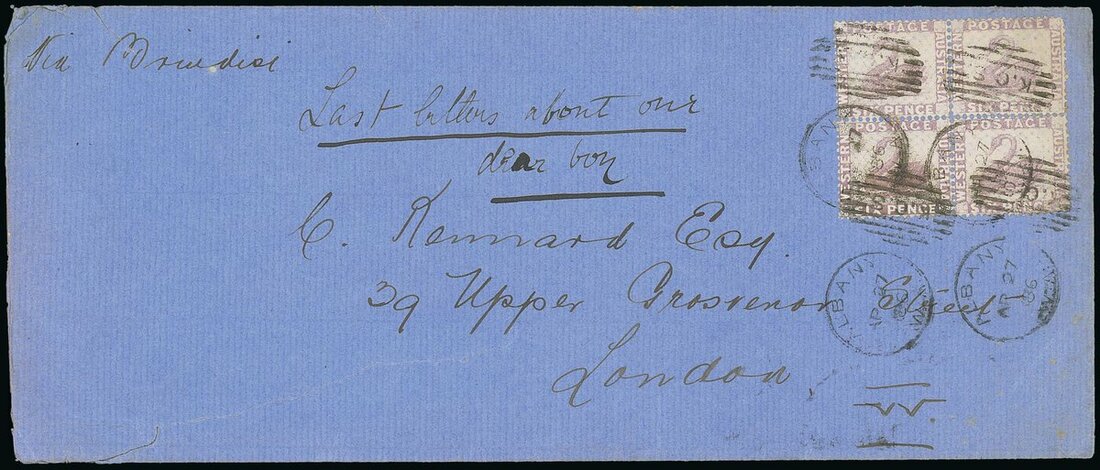 Via Brindisi
Last letters about our
dear boy
C. Kennard Esq.
39 Upper Grosvenor Street
London
W.
POSTAGE
WESTERN AUSTRALIA
SIX PENCE
POSTAGE
WESTERN AUSTRALIA
SIX PENCE
POSTAGE
WESTERN
SIX PENCE
POSTAGE
WESTERN
SIX PENCE
ALBANY
AP 27
86
ALBANY
AP 27
86